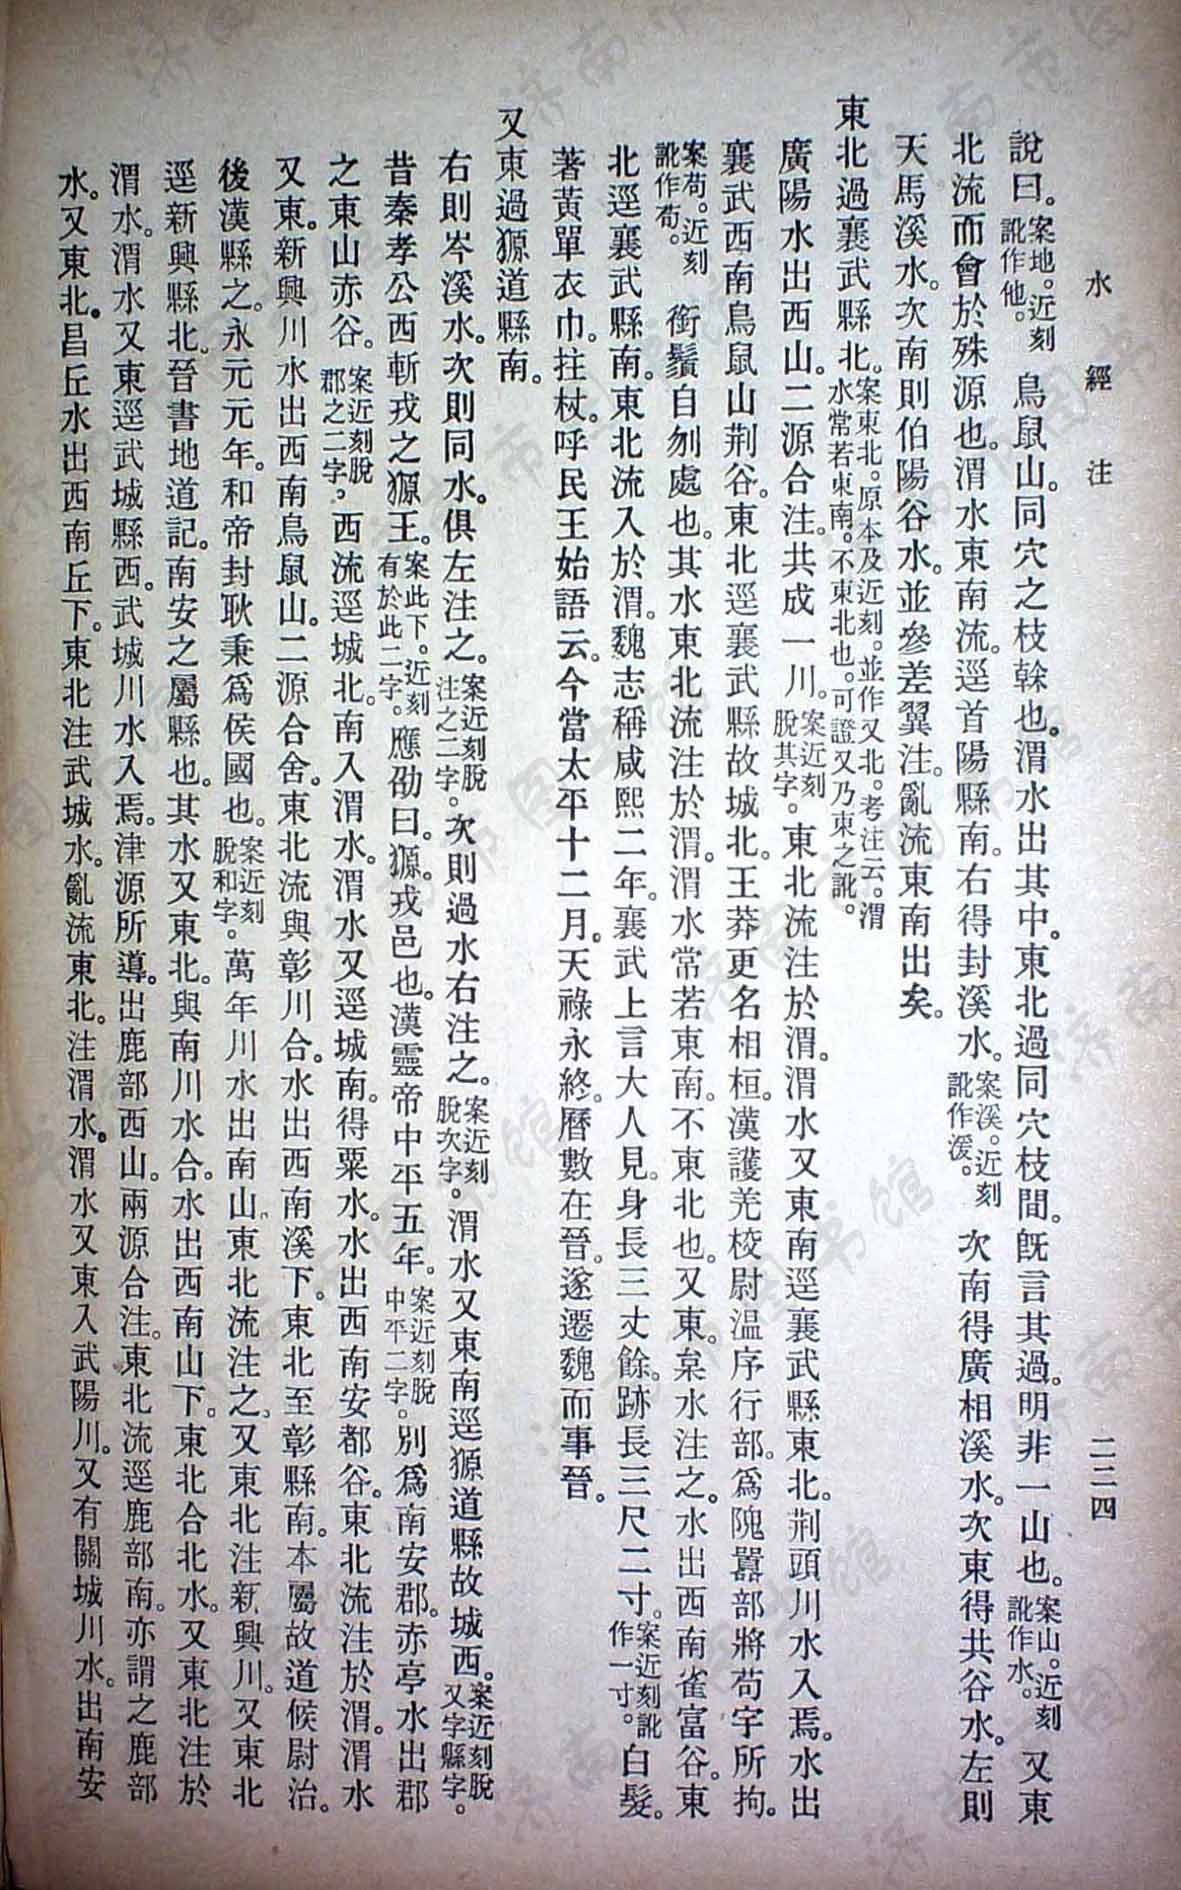 水經注　二二四
說曰。案地。近刻訛作他。鳥鼠山。同穴之枝榦也。渭水出其中。東北過同穴枝間。旣言其過。明非一山也。案山。近刻訛作水。又東
北流而會於殊源也。渭水東南流。逕首陽縣南。右得封溪水。案溪。近刻訛作湲。次南得廣相溪水。次東得共谷水。左則
天馬溪水。次南則伯陽谷水。並參差翼注。亂流東南出矣。
東北過襄武縣北。案東北。原本及近刻。並作又北。考注云。渭水常若東南。不東北也。可證又乃東之訛。
廣陽水出西山。二源合注。共成一川。案近刻脫其字。東北流注於渭。渭水又東南逕襄武縣東北。荆頭川水入焉。水出
襄武西南鳥鼠山荆谷。東北逕襄武縣故城北。王莽更名相桓。漢護羌校尉溫序行部。爲隗囂部將苟宇所拘。
案苟。近刻訛作荀。銜鬚自刎處也。其水東北流注於渭。渭水常若東南。不東北也。又東。枲水注之。水出西南雀富谷。東
北逕襄武縣南。東北流入於渭。魏志稱咸熙二年。襄武上言大人見。身長三丈餘。跡長三尺二寸。案近刻訛作一寸。白髮。
著黃單衣巾。拄杖。呼民王始語云。今當太平十二月。天祿永終。曆數在晉。遂遷魏而事晉。
又東過獂道縣南。
右則岑溪水。次則同水。俱左注之。案近刻脫注之二字。次則過水右注之。案近刻脫次字。渭水又東南逕獂道縣故城西。案近刻脫又字縣字。
昔秦孝公西斬戎之獂王。案此下。近刻有於此二字。應劭曰。獂。戎邑也。漢靈帝中平五年。案近刻脫中平二字。別爲南安郡。赤亭水出郡
之東山赤谷。案近刻脫郡之二字。西流逕城北。南入渭水。渭水又逕城南。得粟水。水出西南安都谷。東北流注於渭。渭水
又東。新興川水出西南鳥鼠山。二源合舍。東北流與彰川合。水出西南溪下。東北至彰縣南。本屬故道候尉治。
後漢縣之。永元元年。和帝封耿秉爲侯國也。案近刻脫和字。萬年川水出南山。東北流注之。又東北注新興川。又東北
逕新興縣北。晉書地道記。南安之屬縣也。其水又東北。與南川水合。水出西南山下。東北合北水。又東北注於
渭水。渭水又東逕武城縣西。武城川水入焉。津源所導。出鹿部西山。兩源合注。東北流逕鹿部南。亦謂之鹿部
水。又東北。昌丘水出西南丘下。東北注武城水。亂流東北。注渭水。渭水又東入武陽川。又有關城川水。出南安